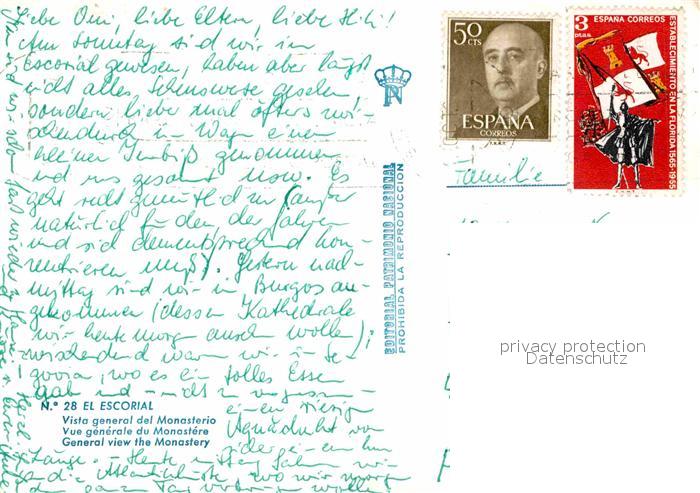 Liebe Omi, liebe Eltern, liebe
Am Sonntag sind wir in
Escorial gewesen, haben aber längst
nicht alles Sehenswerte gesehen
sondern lieber mal öfters
im Wagen einen
kleinen Imbiß genommen
und uns gesonnt usw. Es
geht recht gemütlich zu
natürlich für den, der fahren
und sich dementsprechend kon-
zentrieren muß). Gestern nach-
mittag sind wir in Burgos an-
gekommen (dessen Kathedrale
wir heute morgen ansehen wollen);
zwischendurch waren wir in Se-
govia, wo es ein tolles Essen
gab und - nicht zu vergessen -
einen riesigen
Aquädukt von
Länge. - Heute mittag fahren wir
an die Atlantikküste, wo wir morgen
den ganzen Tag verbringen wollen
N.º 28 EL ESCORIAL
Vista general del Monasterio
Vue générale du Monastère
General view the Monastery
EDITORIAL PATRIMONIO NACIONAL
PROHIBIDA LA REPRODUCCION
50
CTS
ESPAÑA
CORREOS
3
ptas.
ESPAÑA CORREOS
ESTABLECIMIENTO EN LA FLORIDA 1565-1965
Familie
privacy protection
Datenschutz